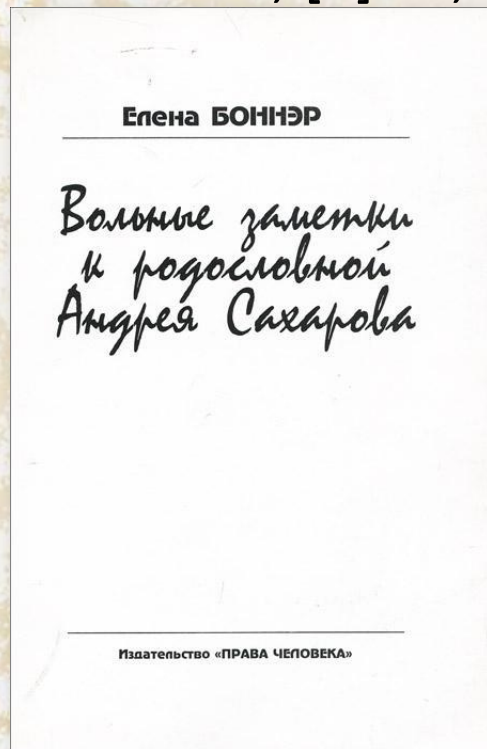 Елена БОННЭР
Вольные заметки
к родословной
Андрея Сахарова
Издательство «ПРАВА ЧЕЛОВЕКА»